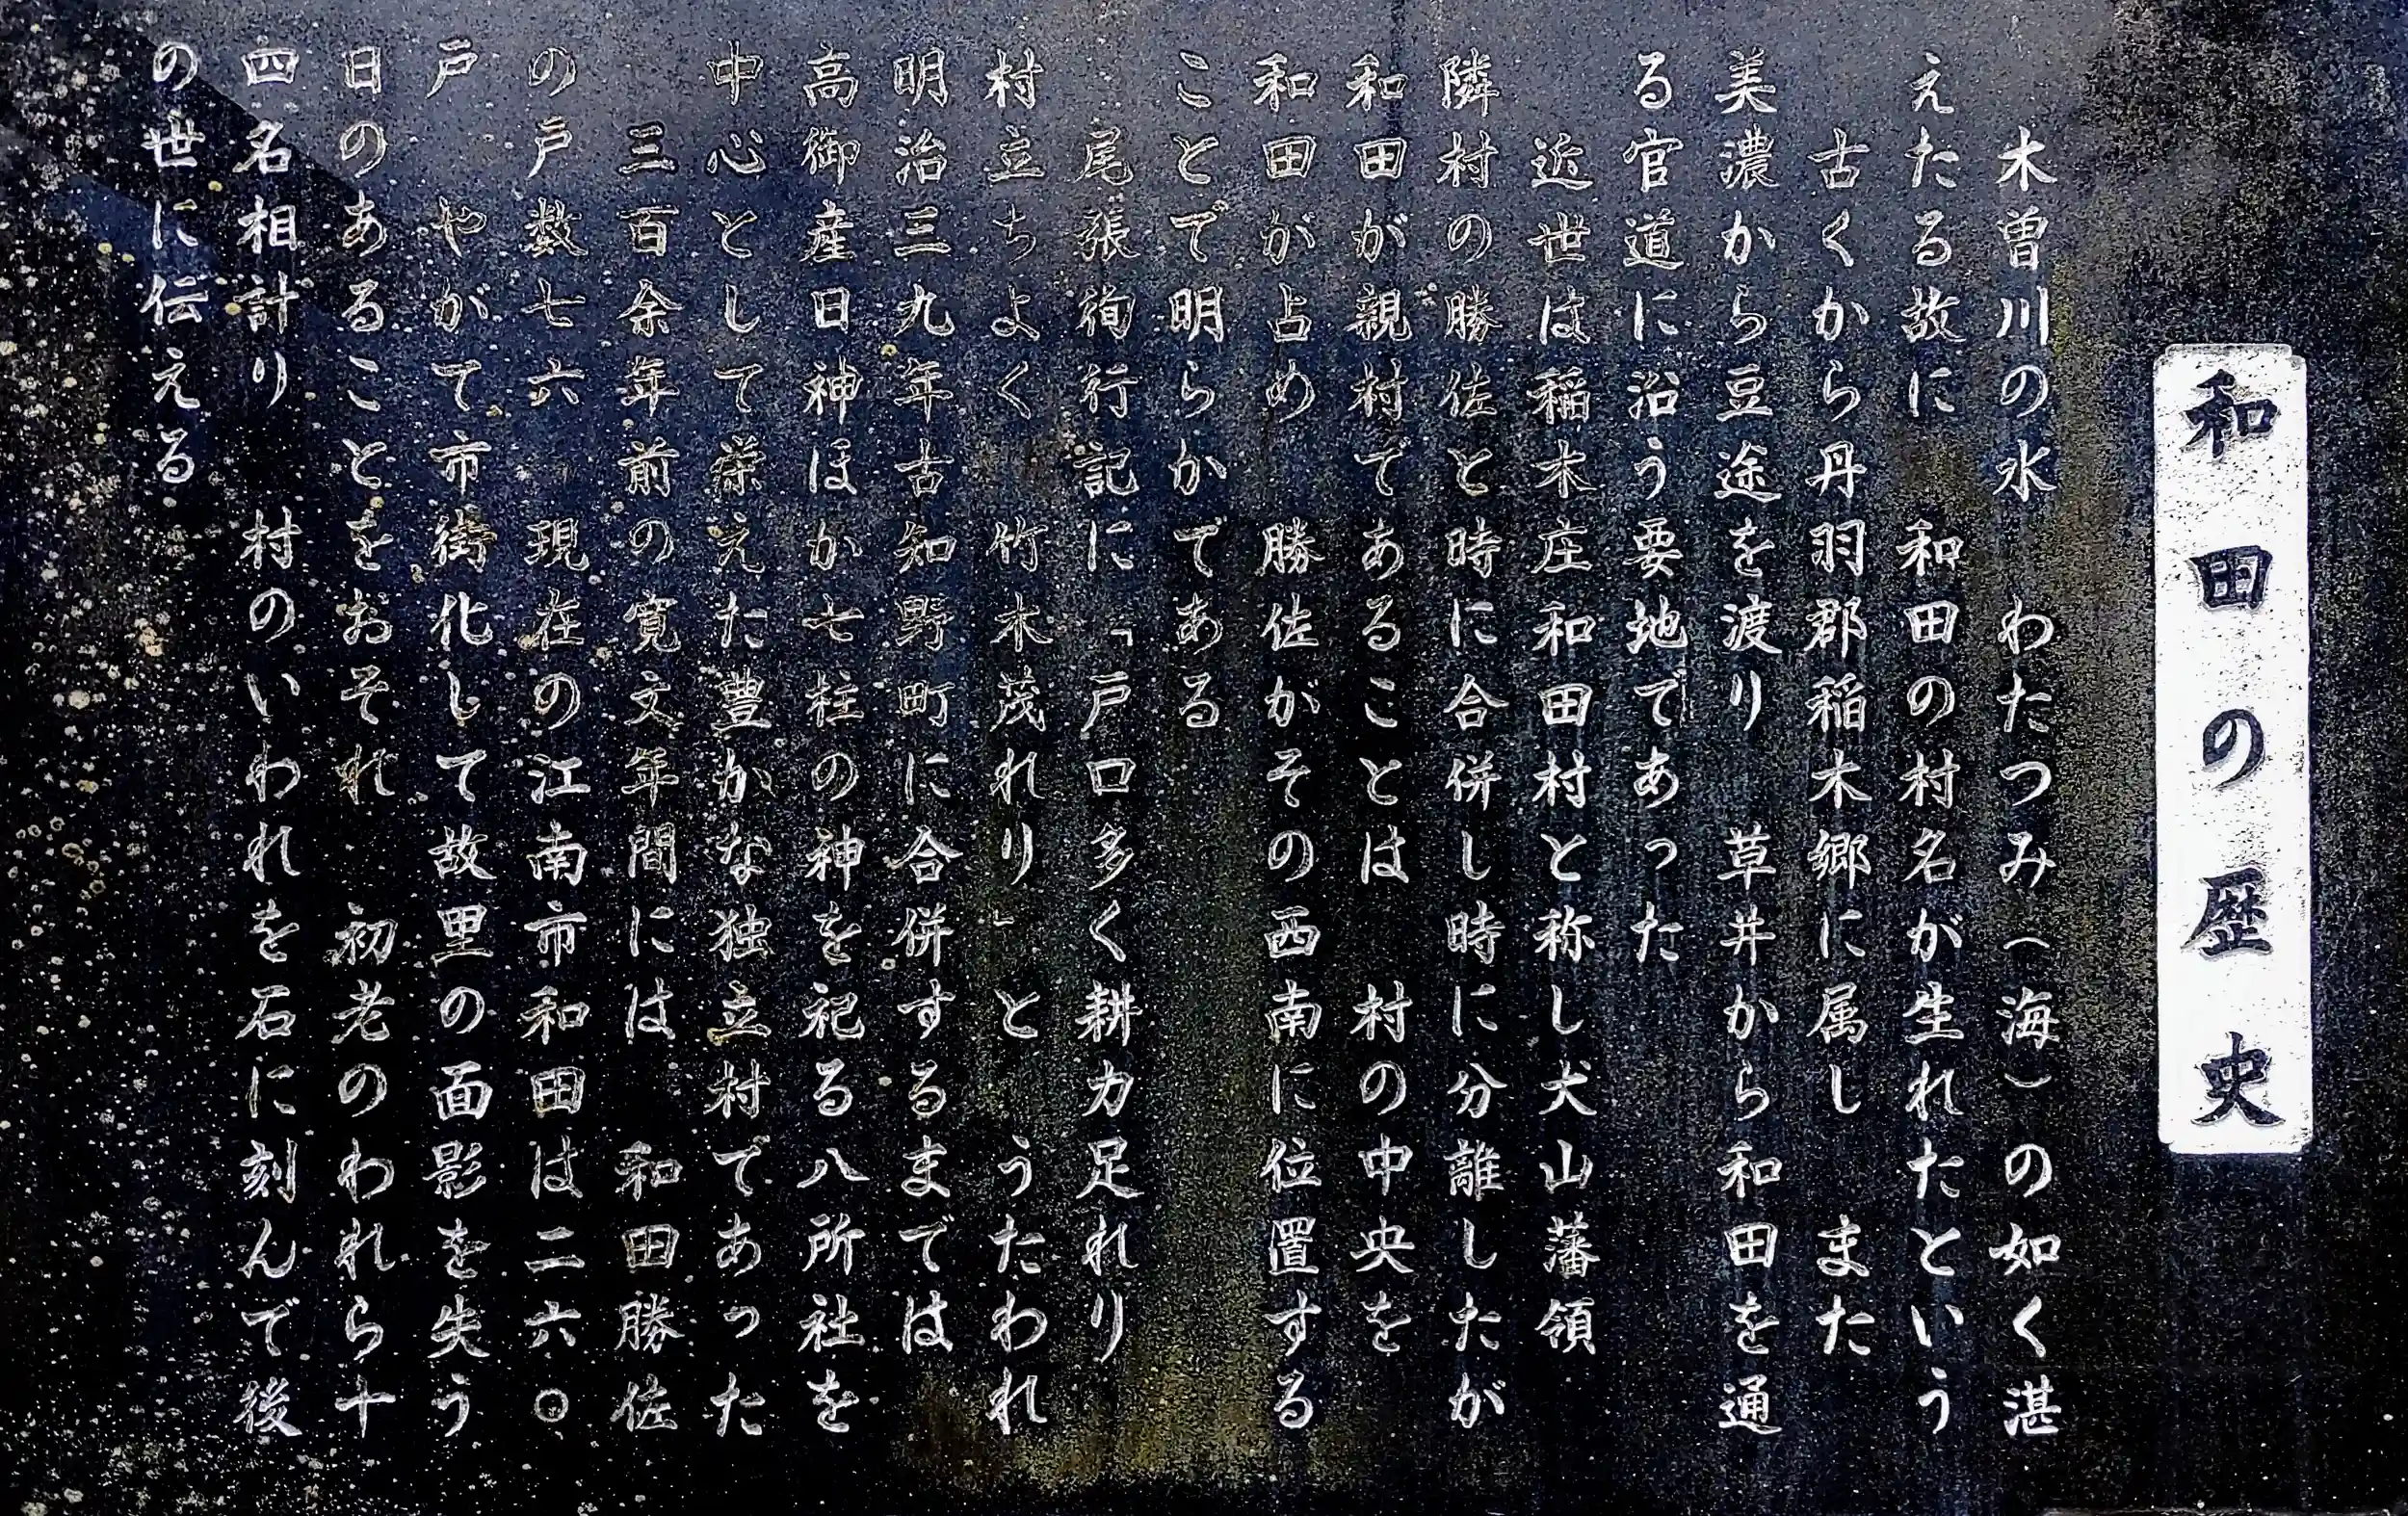 和田の歴史
木曽川の水　わたつみ（海）の如く湛
えたる故に　和田の村名が生れたという
古くから丹羽郡稲木郷に属し　また
美濃から豆途を渡り　草井から和田を通
る官道に沿う要地であった
近世は稲木庄和田村と称し犬山藩領
隣村の勝佐と時に合併し時に分離したが
和田が親村であることは　村の中央を
和田が占め　勝佐がその西南に位置する
ことで明らかである
尾張徇行記に「戸口多く耕力足れり
村立ちよく　竹木茂れり」と　うたわれ
明治三九年古知野町に合併するまでは
高御産日神ほか七柱の神を祀る八所社を
中心として栄えた豊かな独立村であった
三百余年前の寛文年間には　和田勝佐
の戸数七六　現在の江南市和田は二六〇
戸　やがて市街化して故里の面影を失う
日のあることをおそれ　初老のわれら十
四名相計り　村のいわれを石に刻んで後
の世に伝える